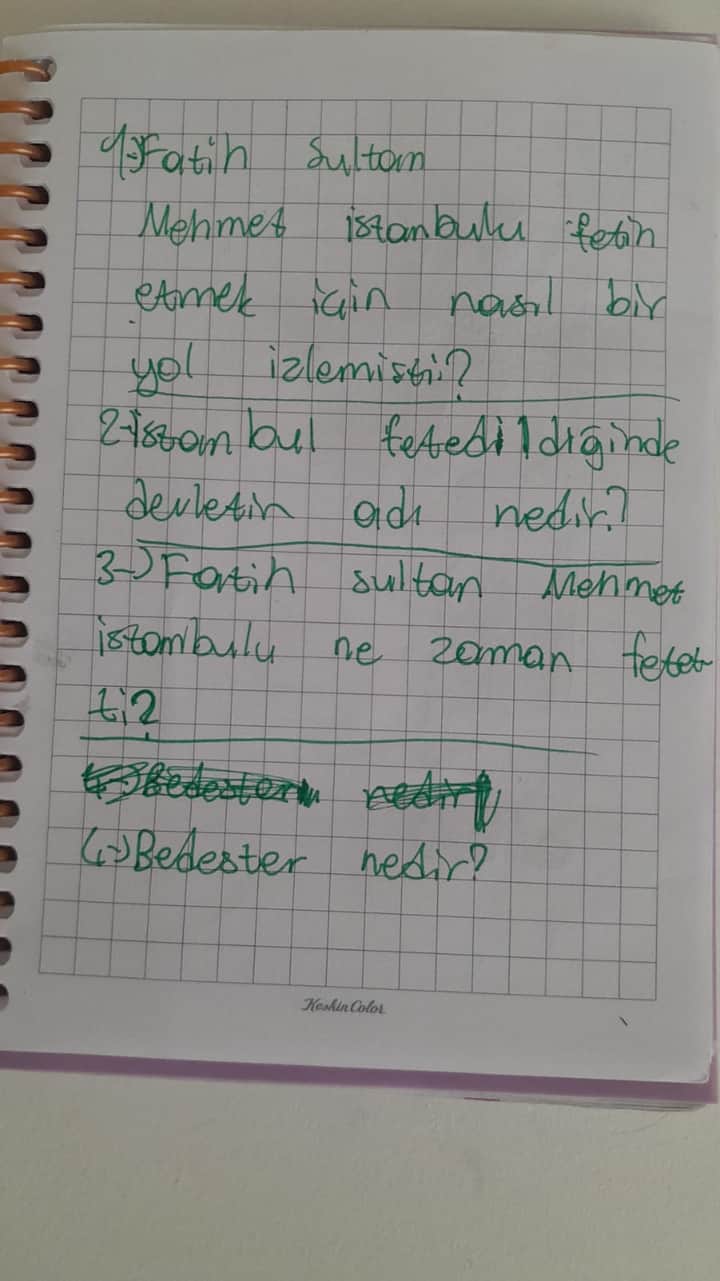 1-)Fatih Sultan
Mehmet istanbulu fetih
etmek için nasıl bir
yol izlemiştii?
2-istanbul fetedildiğinde
devletin adı nedir?
3-)Fatih sultan Mehmet
istanbulu ne zaman fetet
ti?
4-)Bedester nedir?
4-)Bedester nedir?
KeskinColor